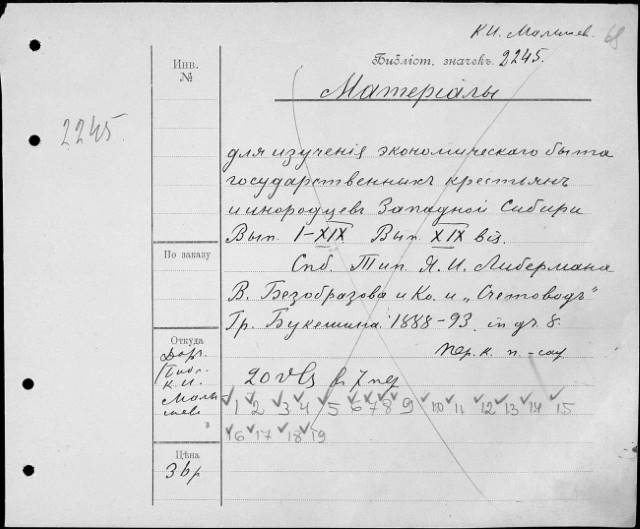 К.И. Малышев. 68
Библіот. значекъ. 2245.
Инв.
№
2245
Матеріалы
для изученія экономическаго быта
государственныхъ крестьянъ
и инородцевъ Западной Сибири
Вып. I-XIX Вып. XIX bis.
По заказу
Спб. Тип. Я. И. Либермана
В. Безобразова и Ко. и „Счетоводъ"
Гр. Букешина. 1888-93. in дъ 8.
Откуда
пер. к. п. -
Дар.
К.И.
Малы
шева
20 в 7 пер
1 2 3 4 5 6 7 8 9 10 11 12 13 14 15
16 17 18 19
Цѣна
3 б р